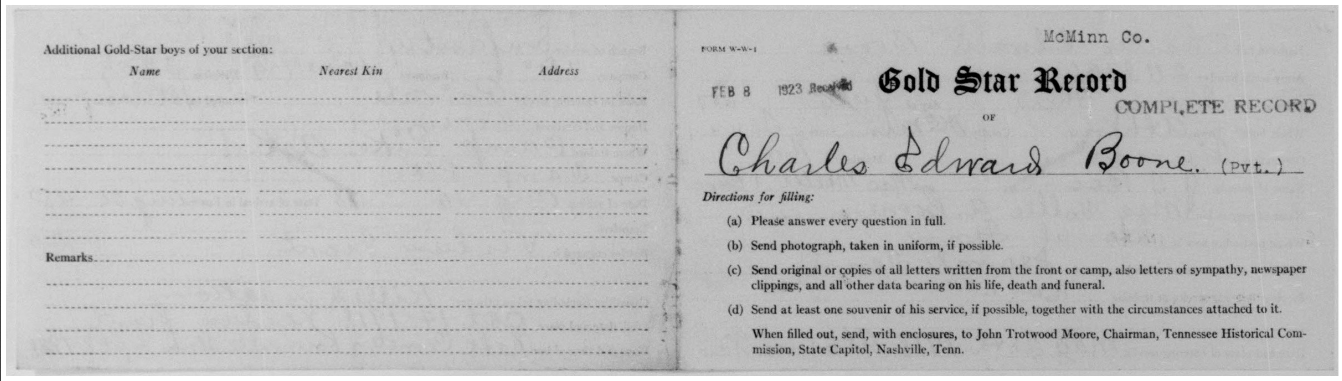 Additional Gold-Star boys of your section:
Name Nearest Kin Address
Remarks
McMinn Co.
FORM W-W-1
FEB 8 1923 Received
Gold Star Record
COMPLETE RECORD
OF
Charles Edward Boone. (Pvt.)
Directions for filling:
(a) Please answer every question in full.
(b) Send photograph, taken in uniform, if possible.
(c) Send original or copies of all letters written from the front or camp, also letters of sympathy, newspaper
clippings, and all other data bearing on his life, death and funeral.
(d) Send at least one souvenir of his service, if possible, together with the circumstances attached to it.
When filled out, send, with enclosures, to John Trotwood Moore, Chairman, Tennessee Historical Com-
mission, State Capitol, Nashville, Tenn.